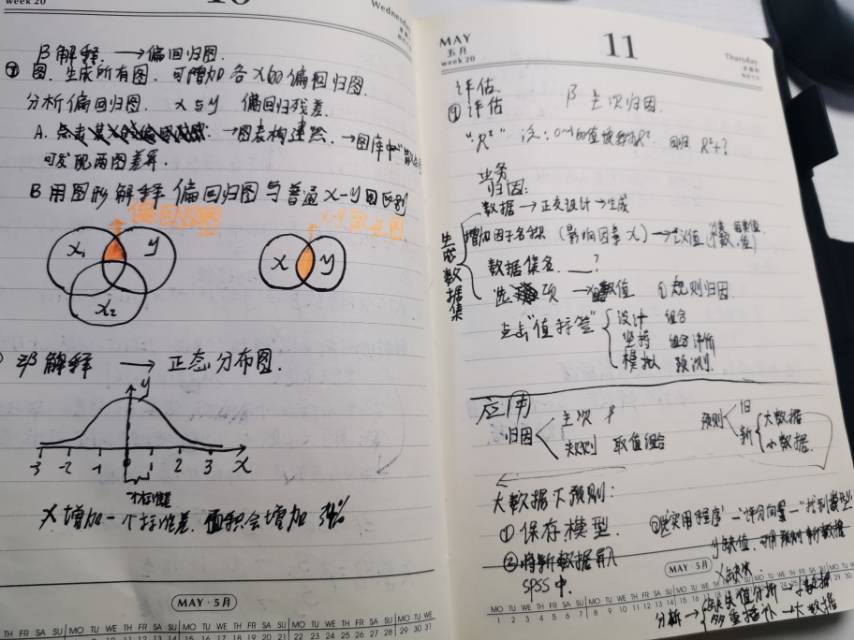 week 20
10
Wednesday
β解释 → 偏回归图.
① 图. 生成所有图. 可增加各X的偏回归图.
分析偏回归图. X与y 偏回归残差.
A. 点击 → 图表构建器. → 图库中
可发现两图差异.
B 用图形解释 偏回归图与普通X-y图区别
偏回归图
X-y
X₁
y
X₂
X
y
解释 → 正态分布图.
y
-3 -2 -1 0 1 2 3 X
个标准差
X增加一个标准差. 面积会增加 34%
MAY·5月
MAY
五月
week 20
11
Thursday
评估.
① 评估 β 主次归因.
"R²" 注: 0~1的值 R². 回归 R²↑?
业务
归因:
生成数据集
数据 → 正交设计 → 生成
增加因子名称 (影响因素X) → 定义值
数据集名. ___?
选项 ① 规则归因
点击"值标签"
设计 组合
坚持 组合评价
模拟 预测.
应用
归因
主次 β
规则 取值组合
预测
旧
新
大数据
小数据.
大数据下预测:
① 保存模型.
② 将新数据导入
SPSS中.
③ 选"实用程序"→"评分向导"→找到模型
X缺失:
分析 →
缺失值分析 → 小数据
多重插补 → 大数据
MAY·5月
MO TU WE TH FR SA SU